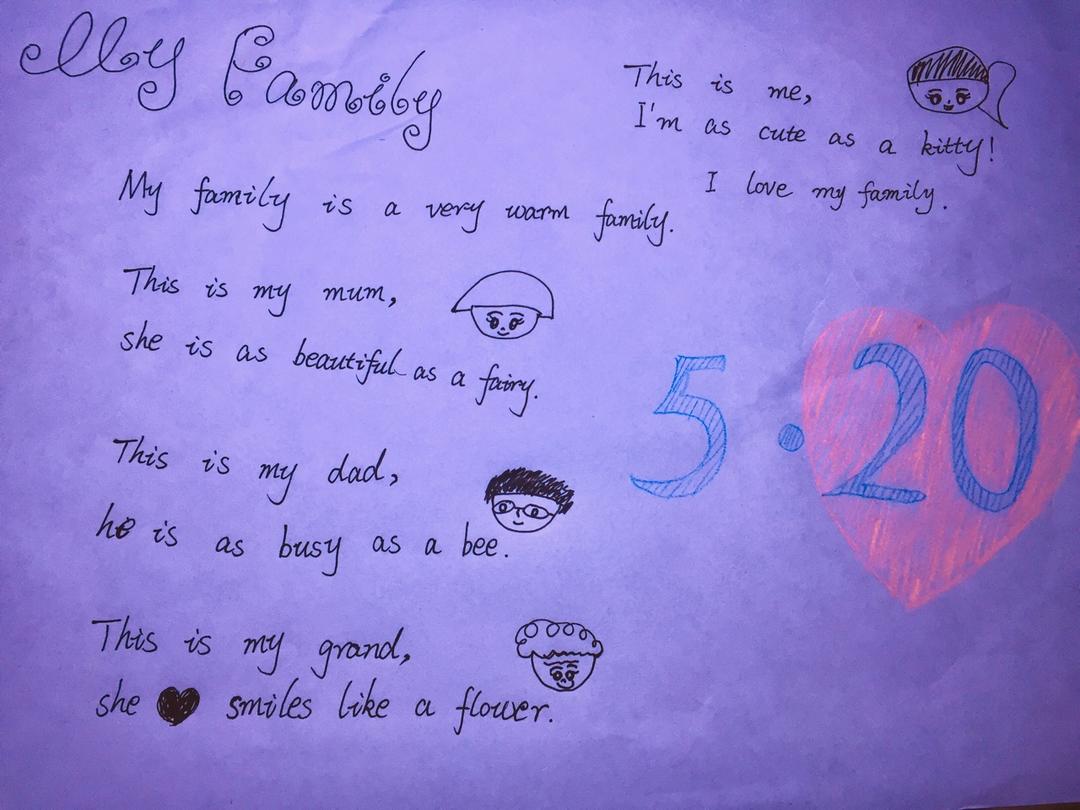 My Family
My family is a very warm family.
This is my mum,
she is as beautiful as a fairy.
This is my dad,
he is as busy as a bee.
This is my grand,
she smiles like a flower.
This is me,
I'm as cute as a kitty!
I love my family.
5·20